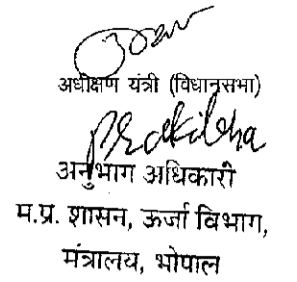 अधीक्षण यंत्री (विधानसभा)
अनुभाग अधिकारी
म.प्र. शासन, ऊर्जा विभाग,
मंत्रालय, भोपाल